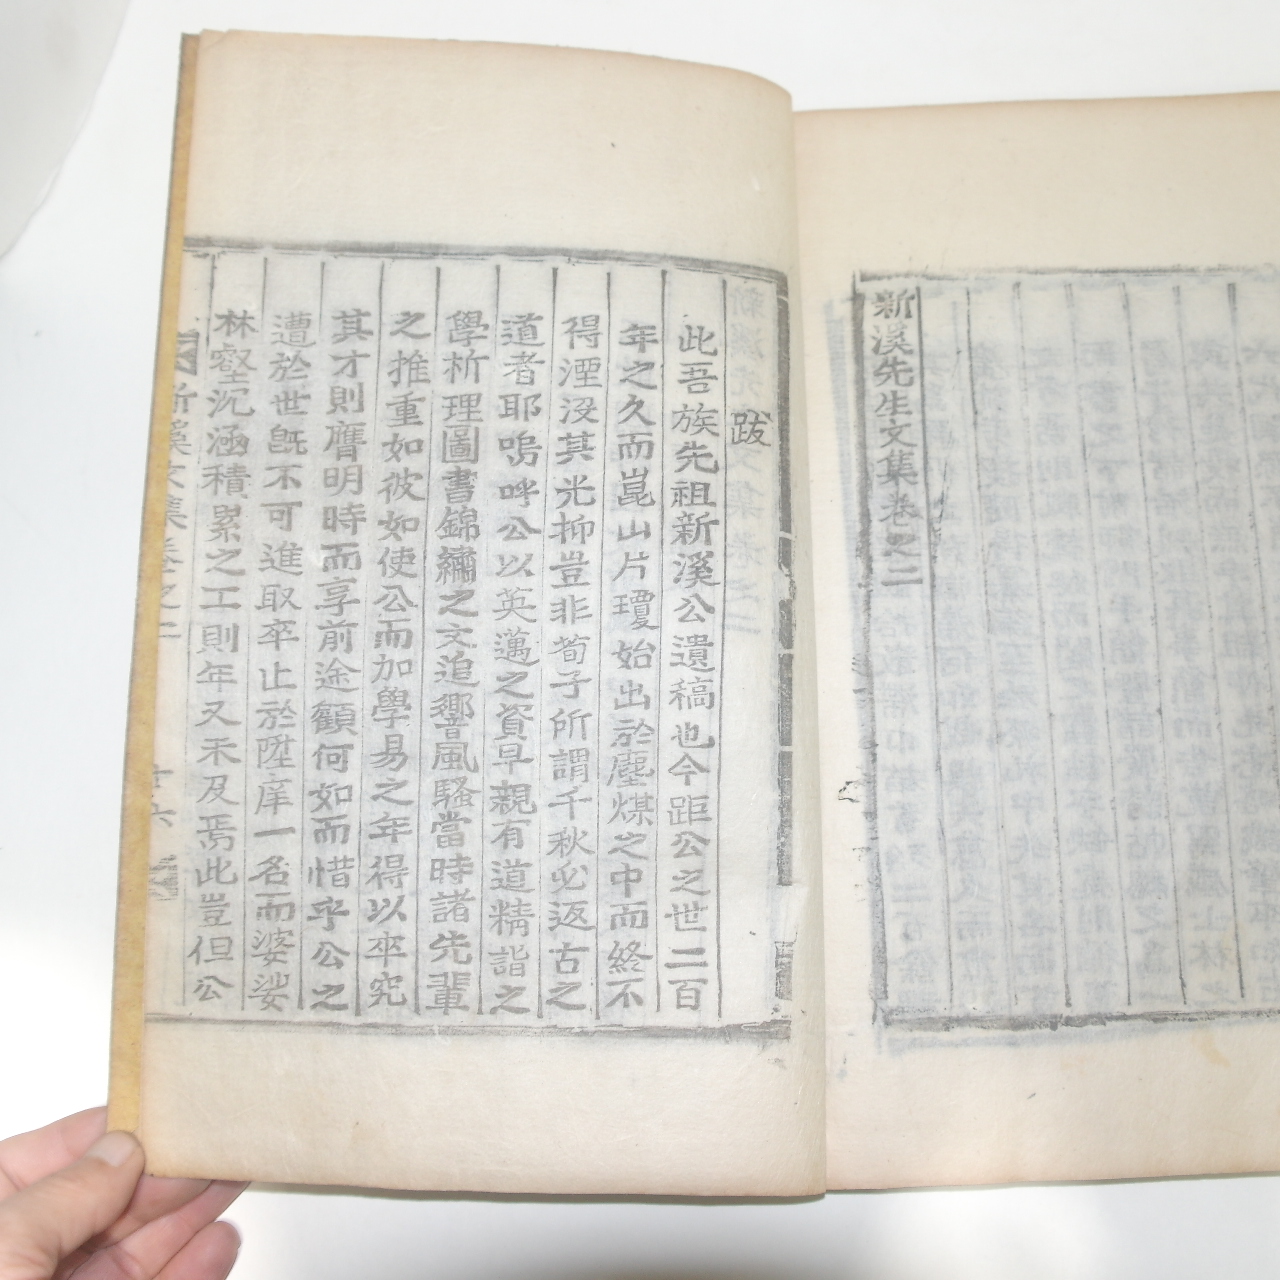 新溪先生文集卷之二
跋
此吾族先祖新溪公遺稿也今距公之世二百
年之久而崑山片瓊始出於塵煤之中而終不
得湮沒其光抑豈非荀子所謂千秋必返古之
道者耶嗚呼公以英邁之資早親有道精詣之
學析理圖書錦繡之文追響風騷當時諸先輩
之推重如彼如使公而加學易之年得以卒究
其才則膺明時而享前途顧何如而惜乎公之
遭於世旣不可進取卒止於陞庠一名而婆娑
林壑沉涵積累之工則年又未及焉此豈但公
新溪文集卷之二 十六